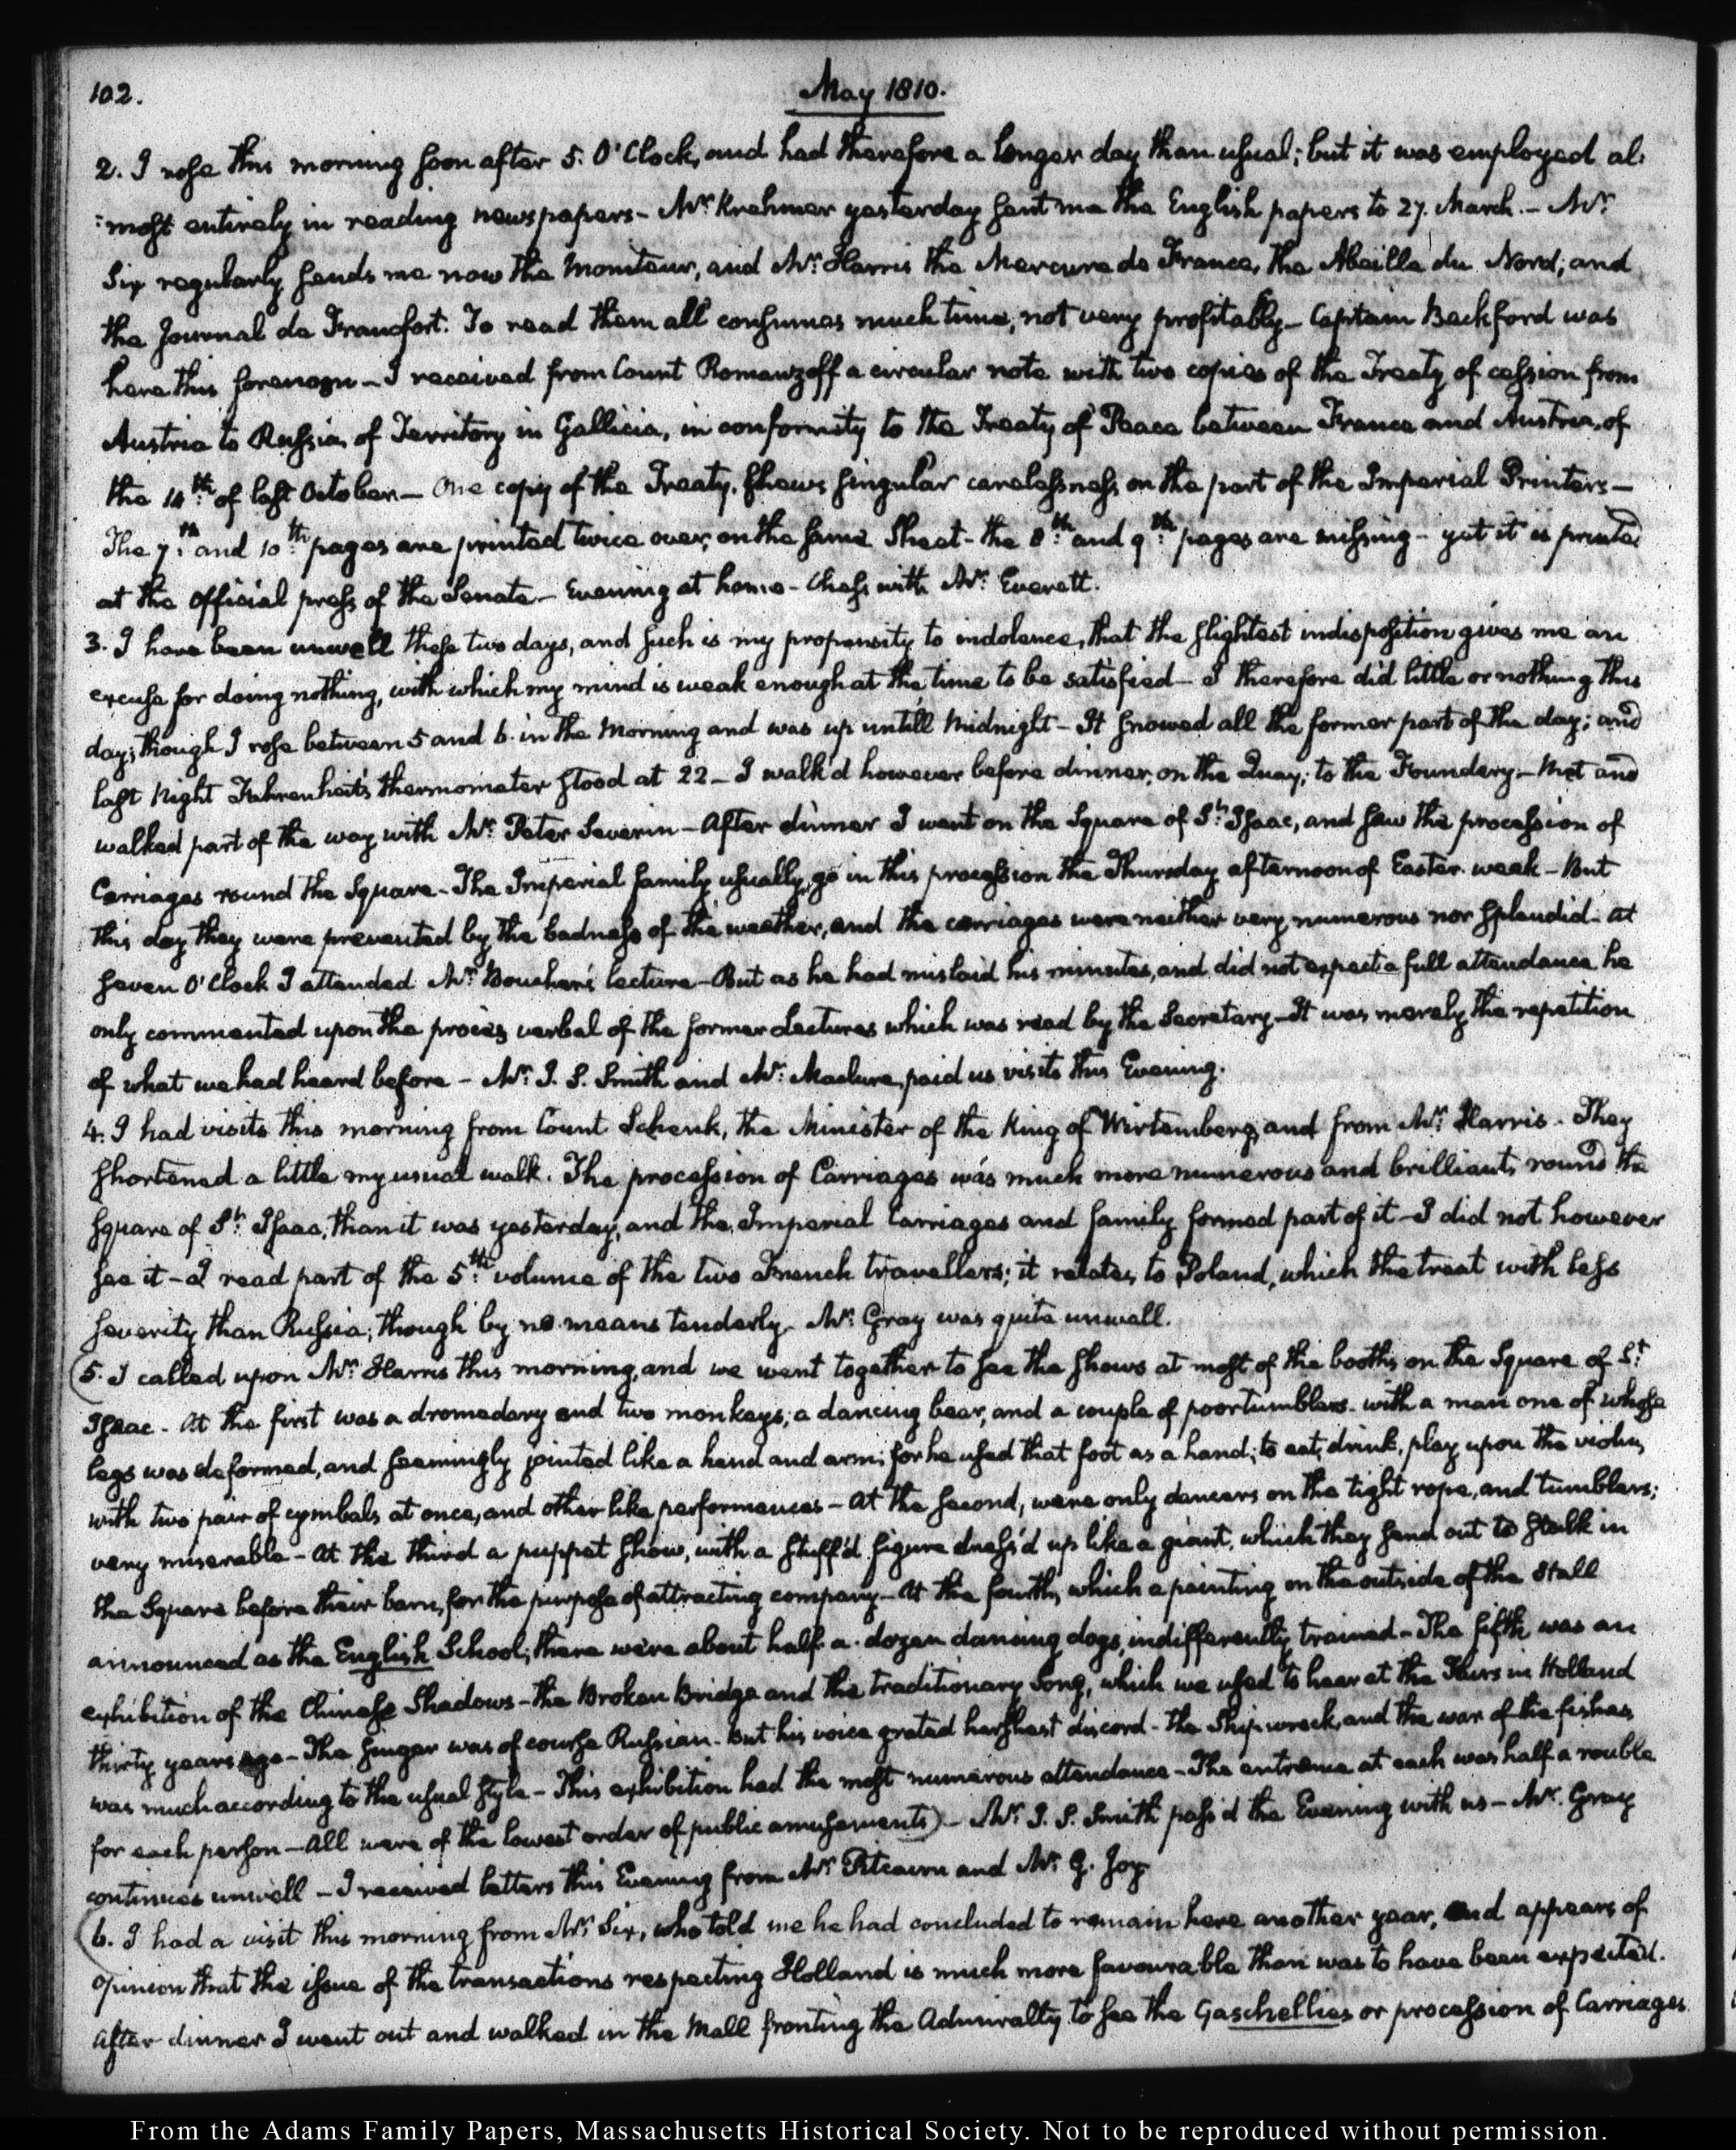 102.
May 1810.
2. I rose this morning soon after 5. O'Clock, and had therefore a longer day than usual; but it was employed al:
:most entirely in reading newspapers— Mr. Krehmer yesterday sent me the English papers to 27. March.— Mr.
Six regularly sends me now the Moniteur, and Mr. Harris the Mercure de France, the Abeille du Nord, and
the Journal de Francfort. To read them all consumes much time, not very profitably— Captain Beckford was
here this forenoon— I received from Count Romanzoff a circular note with two copies of the Treaty of cession from
Austria to Russia, of Territory in Gallicia, in conformity to the Treaty of Peace between France and Austria, of
the 14th. of last October— One copy of the Treaty, shews singular carelessness on the part of the Imperial Printers—
The 7th. and 10th. pages are printed twice over, on the same Sheet— the 8th. and 9th. pages are missing— yet it is printed
at the official press of the Senate— Evening at home— Chess with Mr. Everett.
3. I have been unwell these two days, and such is my propensity to indolence, that the slightest indisposition gives me an
excuse for doing nothing, with which my mind is weak enough at the time to be satisfied— I therefore did little or nothing this
day; though I rose between 5 and 6. in the Morning and was up untill Midnight— It snowed all the former part of the day; and
last Night Fahrenheit's thermometer stood at 22— I walk'd however before dinner, on the Quay; to the Foundery— Met and
walked part of the way with Mr. Peter Severin— After dinner I went on the Square of St. Isaac, and saw the procession of
Carriages round the Square— The Imperial family usually go in this procession the Thursday afternoon of Easter week— But
this day they were prevented by the badness of the weather, and the carriages were neither very numerous nor splendid— at
seven O'Clock I attended Mr. Boucher's lecture— But as he had mislaid his minutes, and did not expect a full attendance he
only commented upon the procès verbal of the former Lectures which was read by the Secretary— It was merely the repetition
of what we had heard before— Mr. J. S. Smith and Mr. Maclure, paid us visits this Evening.
4. I had visits this morning from Count Schenk, the Minister of the King of Wirtemberg, and from Mr. Harris. They
shortened a little my usual walk. The procession of Carriages was much more numerous and brilliant, round the
Square of St. Isaac, than it was yesterday, and the Imperial Carriages and family formed part of it— I did not however
see it— I read part of the 5th. volume of the two French travellers; it relates to Poland, which the treat with less
severity than Russia, though by no means tenderly. Mr. Gray was quite unwell.
(5. I called upon Mr. Harris this morning, and we went together to see the shows at most of the booths on the Square of St.
Isaac— At the first was a dromedary and two monkeys, a dancing bear, and a couple of poor tumblers— with a man one of whose
legs was deformed, and seemingly jointed like a hand and arm; for he used that foot as a hand; to eat, drink, play upon the violin,
with two pair of cymbals at once, and other like performances— At the second, were only dancers on the tight rope, and tumblers;
very miserable— At the third a puppet show, with a stuff'd figure dress'd up like a giant, which they send out to stalk in
the Square before their barn, for the purpose of attracting company— At the fourth, which a painting on the outside of the Stall
announced as the English School, there were about half a dozen dancing dogs, indifferently trained— The fifth was an
exhibition of the Chinese Shadows— the Broken Bridge and the traditionary Song, which we used to hear at the Fairs in Holland
thirty years ago— The singer was of course Russian— But his voice grated harshest discord— the Shipwreck, and the war of the fishes
was much according to the usual style— This exhibition had the most numerous attendance— The entrance at each was half a rouble
for each person— All were of the lowest order of public amusements)— Mr. J. S. Smith pass'd the Evening with us— Mr. Gray
continues unwell— I received letters this Evening from Mr. Pitcairn and Mr. G. Joy
(6. I had a visit this morning from Mr. Six, who told me he had concluded to remain here another year, and appears of
opinion that the issue of the transactions respecting Holland is much more favourable than was to have been expected.
After dinner I went out and walked in the Mall fronting the Admiralty to see the Gaschellies or procession of Carriages
From the Adams Family Papers, Massachusetts Historical Society. Not to be reproduced without permission.